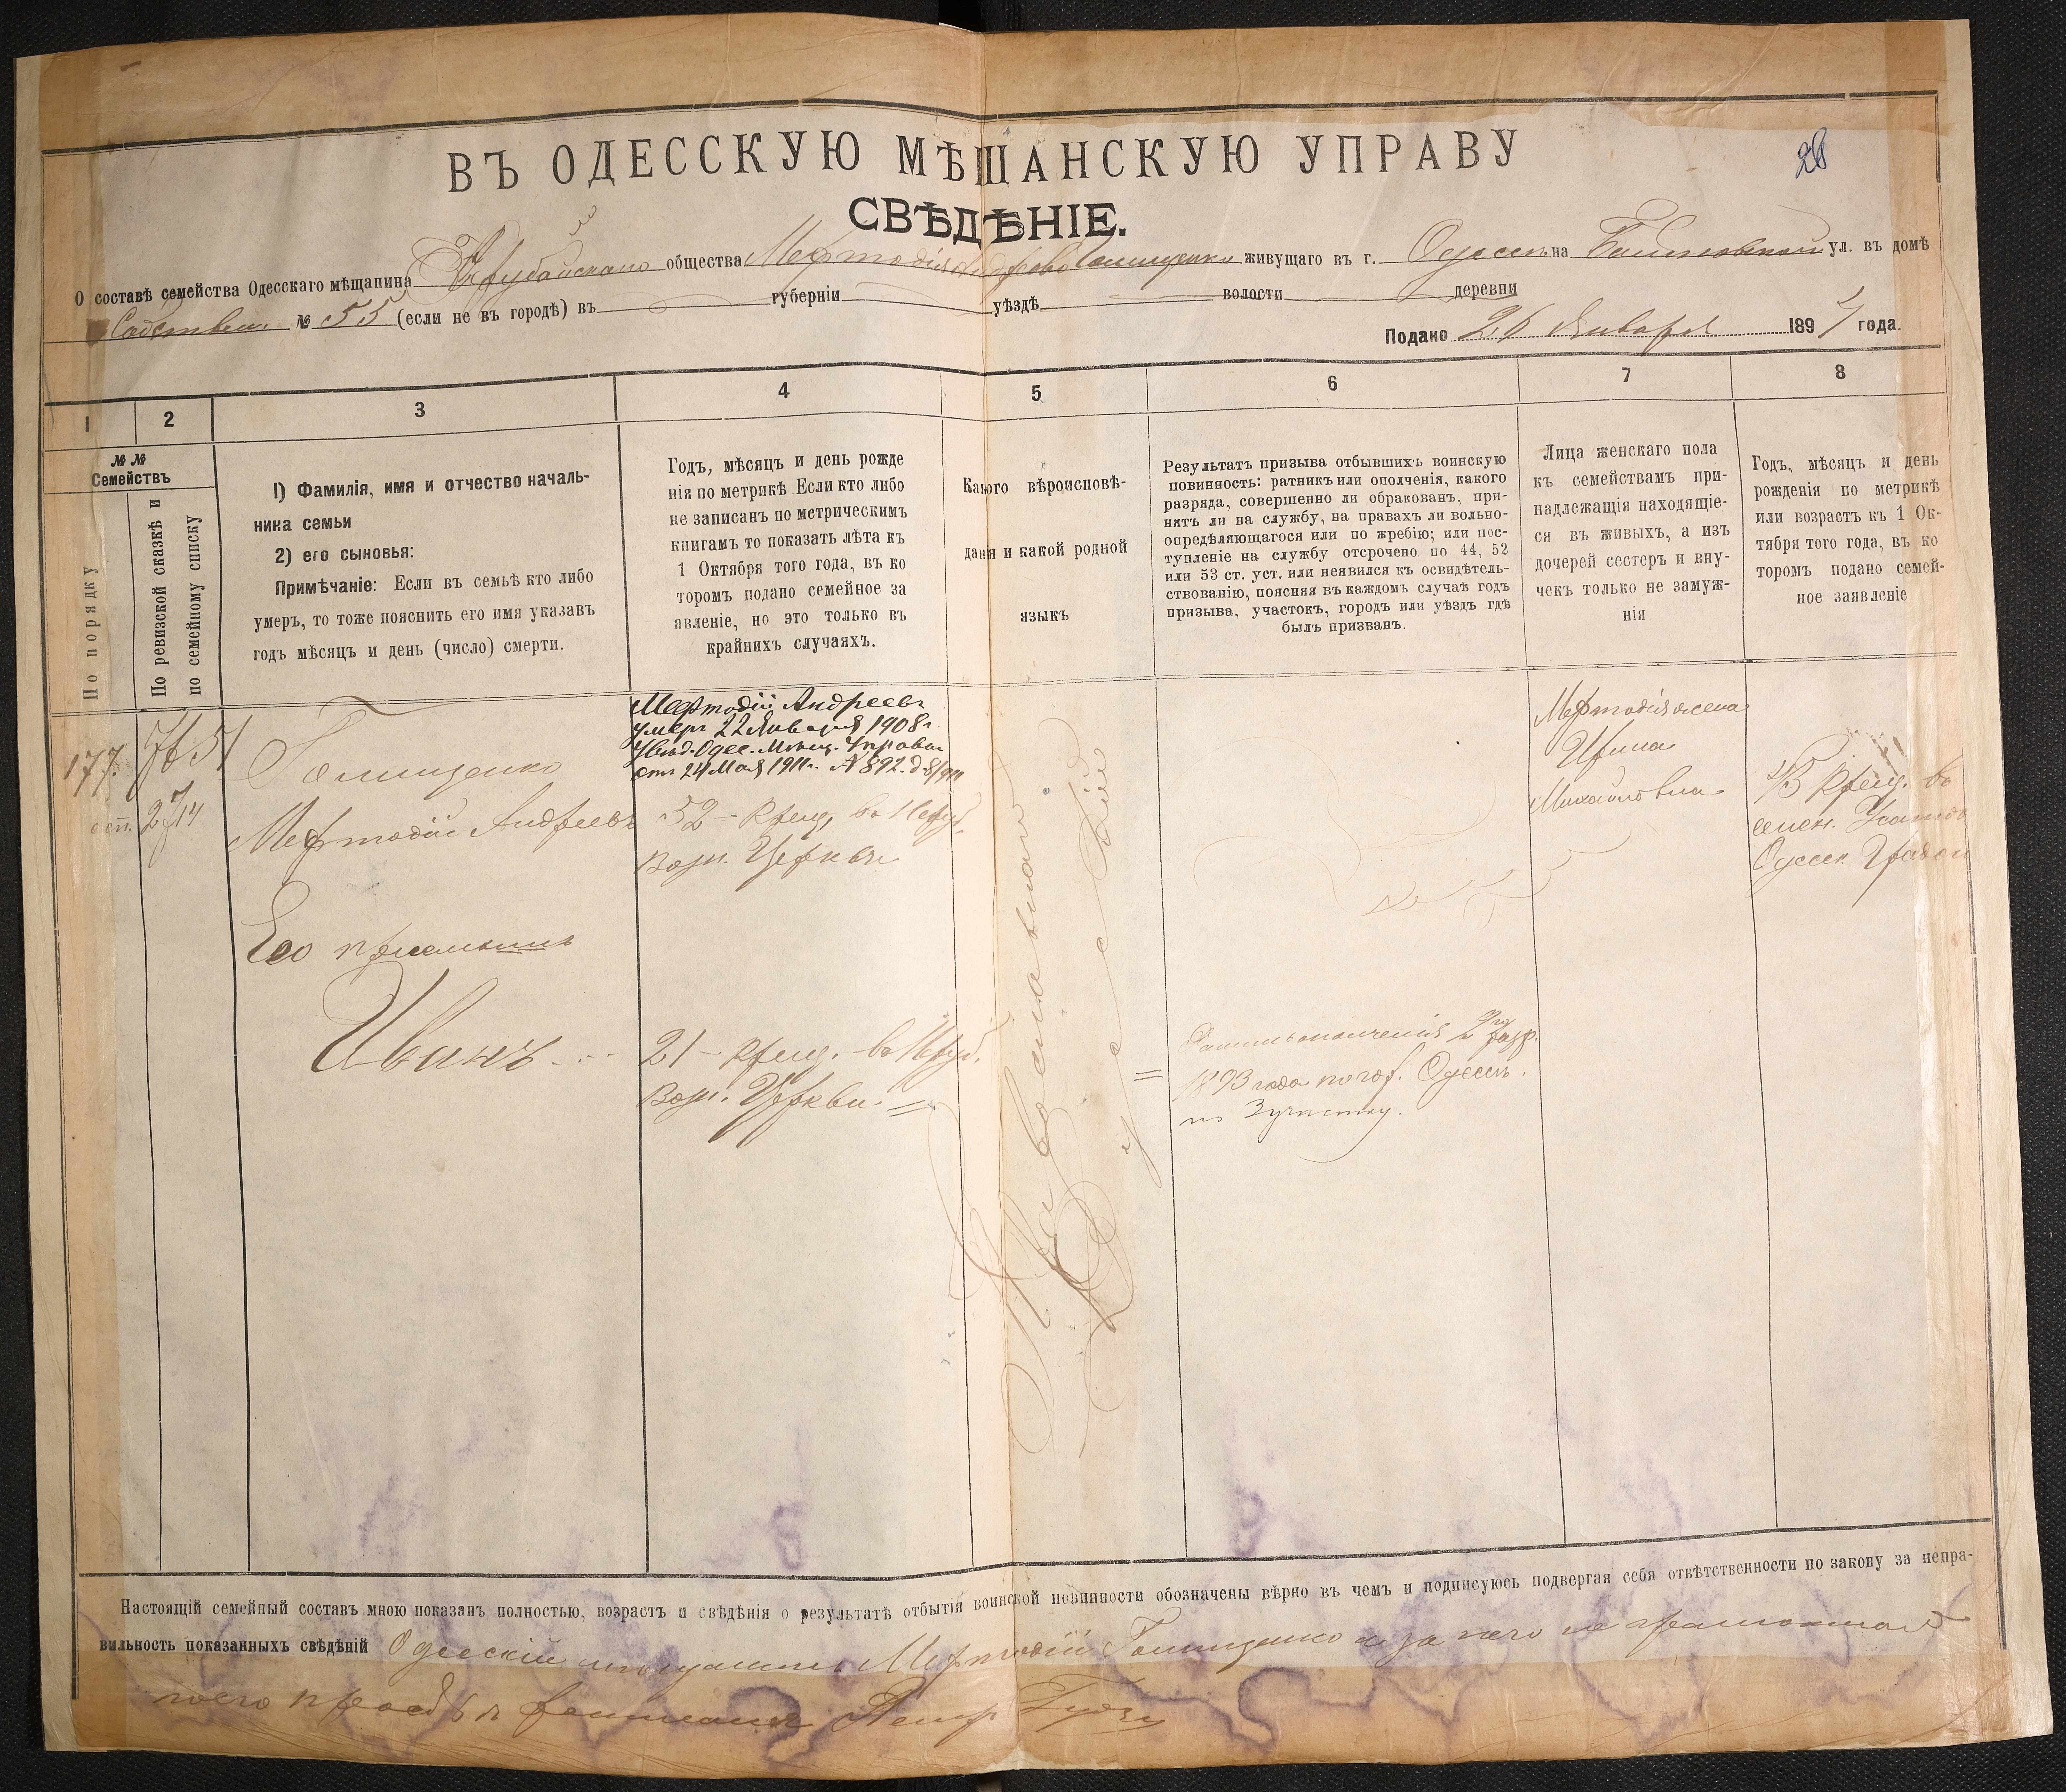 28
ВЪ ОДЕССКУЮ МѢЩАНСКУЮ УПРАВУ
СВѢДѢНІЕ.
О составѣ семейства Одесскаго мѣщанина общества Мефтодія Андреева Голищенко живущаго въ г. Одессѣ на ул. въ домѣ
Собствен. № 55 (если не въ городѣ) въ губерніи уѣздѣ волости деревни
Подано 26 Января 1897 года.
1 2 3 4 5 6 7 8
№№ Семействъ
По порядку
По ревизской сказкѣ и
по семейному списку
1) Фамилія, имя и отчество началь-
ника семьи
2) его сыновья:
Примѣчаніе: Если въ семьѣ кто либо
умеръ, то тоже пояснить его имя указавъ
годъ мѣсяцъ и день (число) смерти.
Годъ, мѣсяцъ и день рожде
нія по метрикѣ. Если кто либо
не записанъ по метрическимъ
книгамъ то показать лѣта къ
1 Октября того года, въ ко
торомъ подано семейное за
явленіе, но это только въ
крайнихъ случаяхъ.
Какого вѣроисповѣ-
данія и какой родной
языкъ
Результатъ призыва отбывшихъ воинскую
повинность: ратникъ или ополченія, какого
разряда, совершенно ли обракованъ, при-
нятъ ли на службу, на правахъ ли вольно-
опредѣляющагося или по жребію; или пос-
тупленіе на службу отсрочено по 44, 52
или 53 ст. уст. или неявился къ освидѣтель-
ствованію, поясняя въ каждомъ случаѣ годъ
призыва, участокъ, городъ или уѣздъ гдѣ
былъ призванъ.
Лица женскаго пола
къ семействамъ при-
надлежащія находящіе-
ся въ живыхъ, а изъ
дочерей сестеръ и вну-
чекъ только не замуж-
нія
Годъ, мѣсяцъ и день
рожденія по метрикѣ
или возрастъ къ 1 Ок-
тября того года, въ ко
торомъ подано семей-
ное заявленіе
Мефтодій Андреевъ
умеръ 22 Января 1908 г.
увѣд. Одес. Мѣщ. Управы
отъ 24 Мая 1911 г. № 892
177
Голищенко
Мефтодій Андреевъ
52 - крещ. въ
Возн. Церкви
Мефтодія жена
Ирина
Михайловна
45 крещ. въ
селен.
Одесск. Градон
Его пріемышъ
Иванъ
21 - крещ. въ
Возн. Церкви
Православнаго
Русскій
Ратник ополченія 2го разр.
1893 года по гор. Одессѣ
по 3 участку.
Настоящій семейный составъ мною показанъ полностью, возрастъ и свѣдѣнія о результатѣ отбытія воинской повинности обозначены вѣрно въ чемъ и подписуюсь подвергая себя отвѣтственности по закону за непра-
вильность показанныхъ свѣдѣній Одесскій мѣщанинъ Мефтодій Голищенко а за него не грамотнаго
по его просьбѣ росписался Петръ